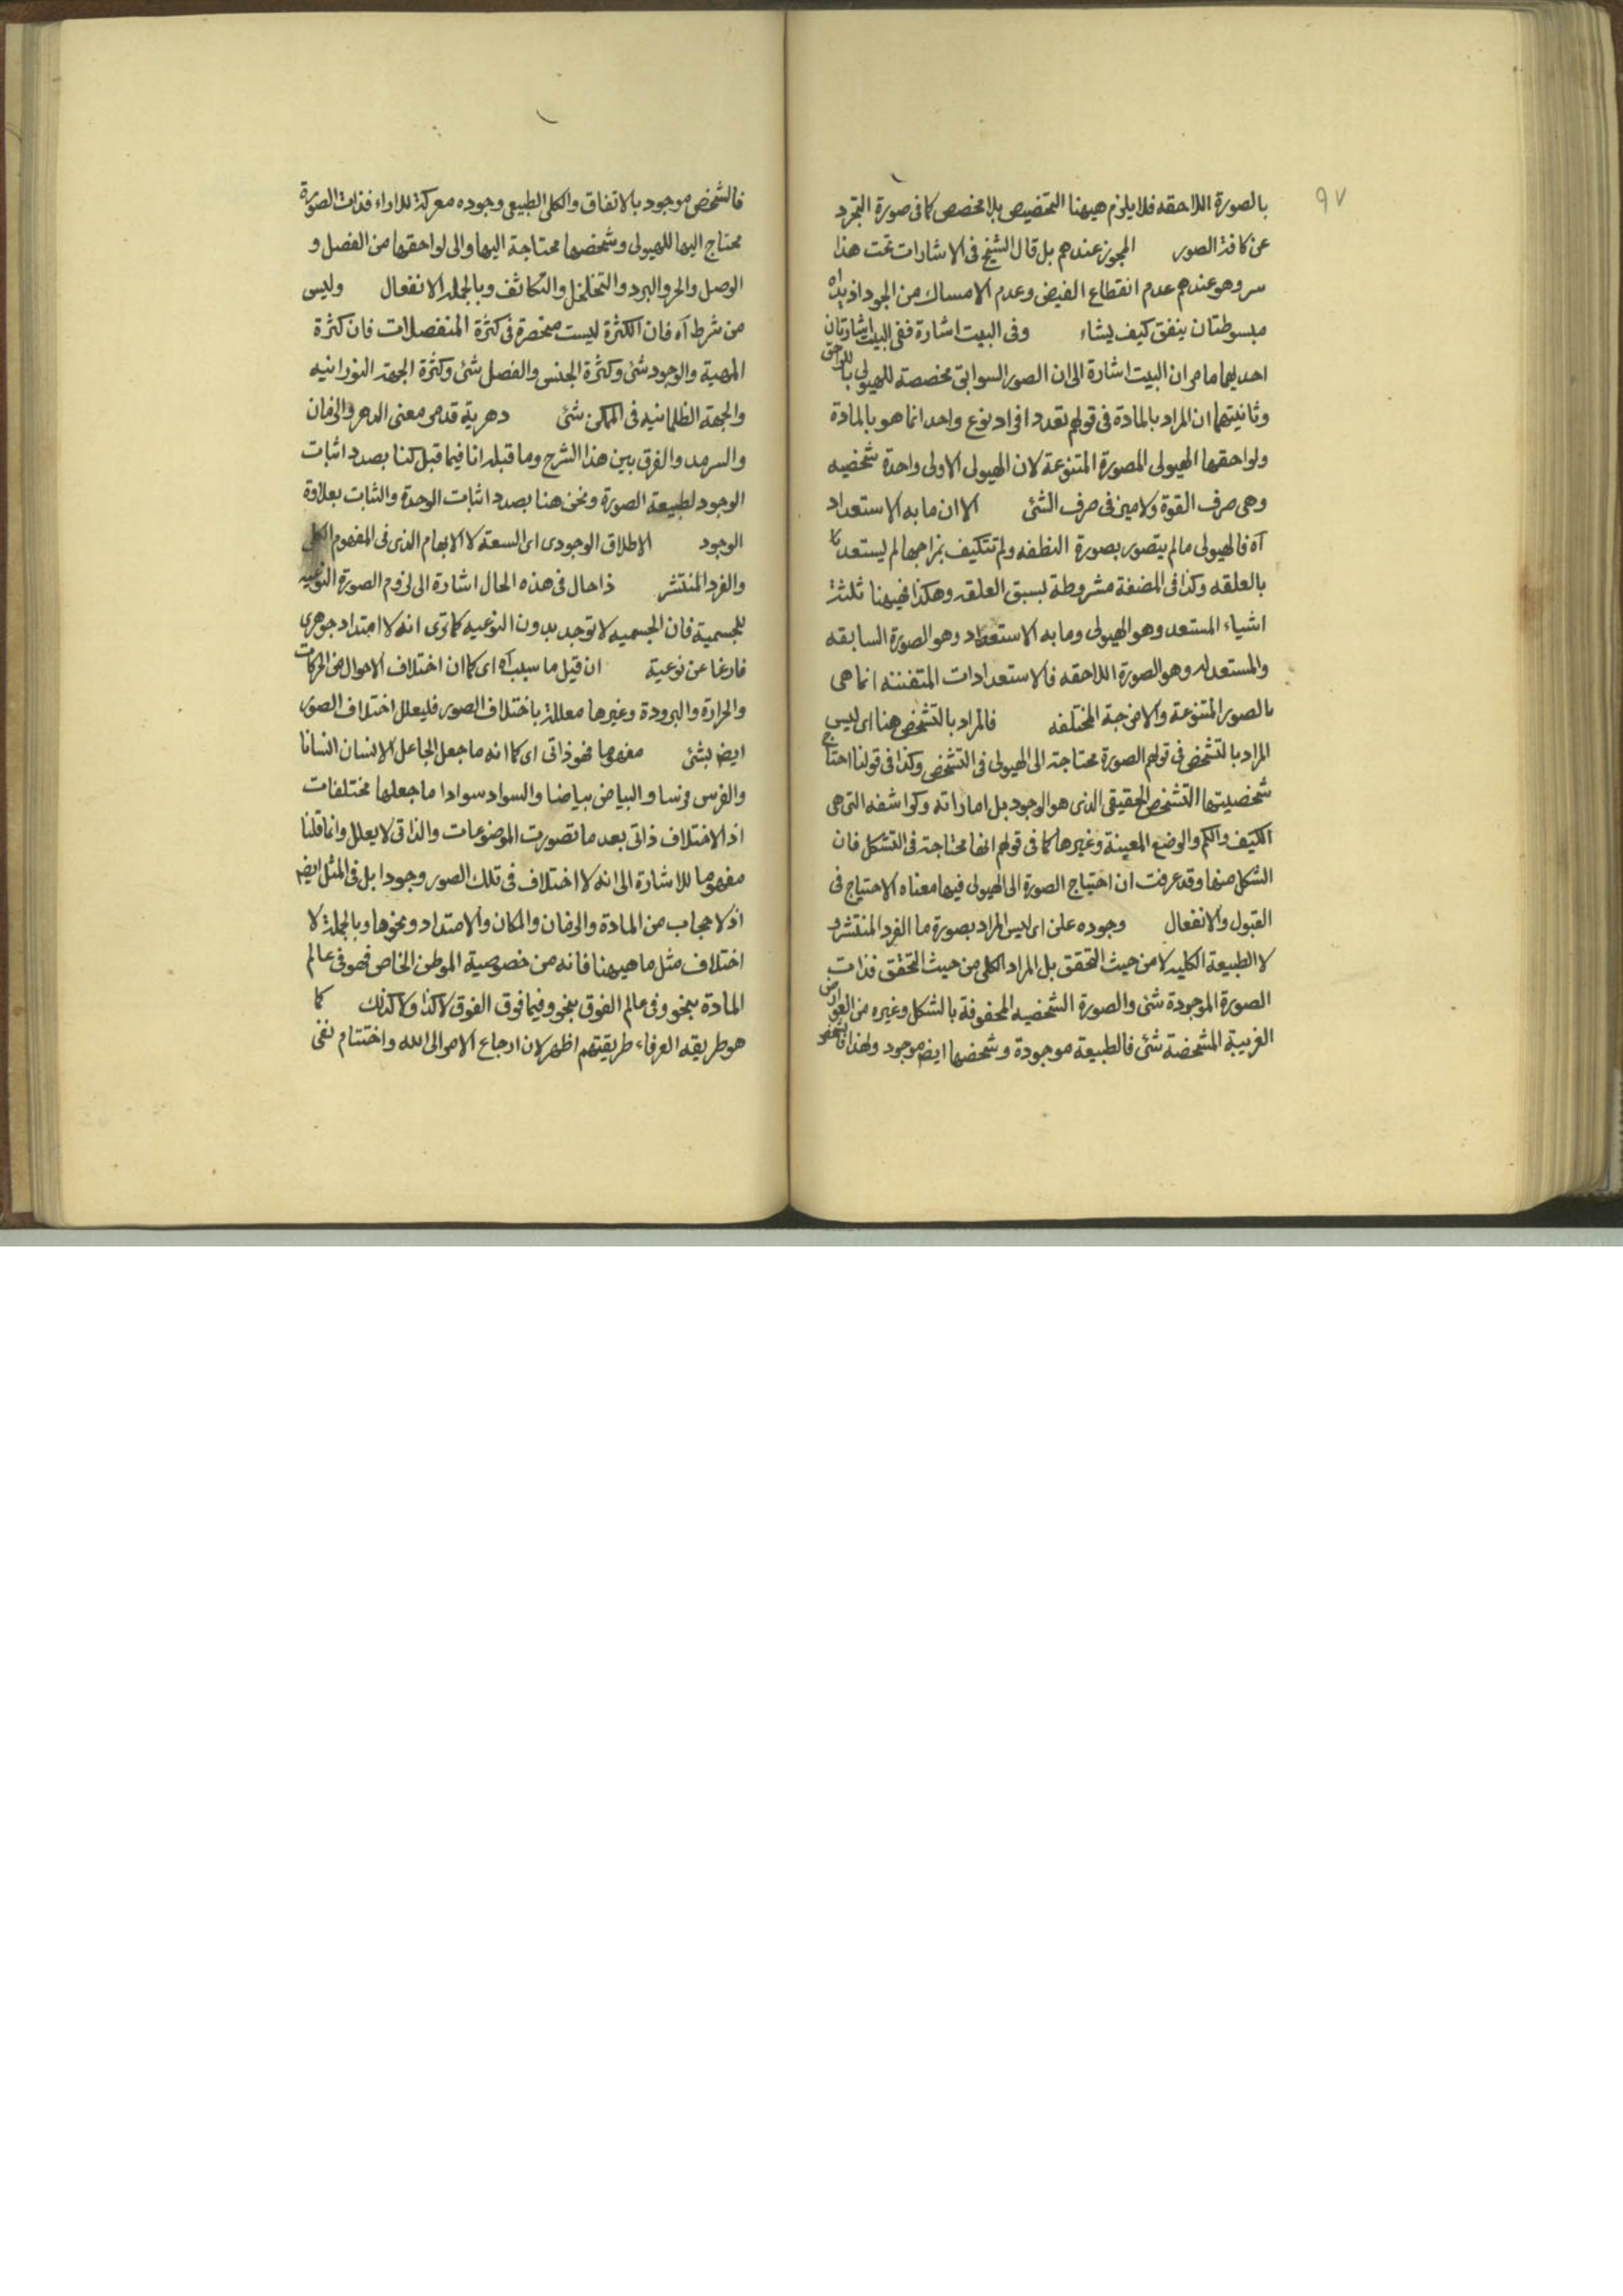 ٩٧
بالصورة اللاحقه فلا يلزم هيهنا التخصيص بلا مخصص كما فى صورة التجرد
عن كافة الصور المجوز عندهم بل قال الشيخ فى الاشارات تحت هذا
سر وهو عندهم عدم انقطاع الفيض وعدم الامساك من الجواد اذ يداه
مبسوطتان ينفق كيف يشاء وفى البيت اشارة ففى البيت اشارتان
احديهما ما مر ان البيت اشارة الى ان الصور السوابق مخصصة للهيولى باللواحق
وثانيتهما ان المراد بالمادة فى قولهم تعدد افراد نوع واحد انما هو بالمادة
ولواحقها الهيولى المصورة المتنوعة لان الهيولى الاولى واحدة شخصيه
وهى صرف القوة ولا ميز فى صرف الشئ الا ان ما به الاستعداد
آه فالهيولى ما لم يتصور بصورة النطفه ولم تتكيف بمزاجها لم يستعد
بالعلقه وكذا فى المضغة مشروطة بسبق العلقه وهكذا فهيهنا ثلثة
اشياء المستعد وهو الهيولى وما به الاستعداد وهو الصورة السابقه
والمستعد له وهو الصورة اللاحقه فالاستعدادات المتفننه انما هى
بالصور المتنوعة والامزجة المختلفه فالمراد بالتشخص هنا اى ليس
المراد بالتشخص فى قولهم الصورة محتاجة الى الهيولى فى التشخص وكذا فى قولنا احتاج
شخصيتها التشخص الحقيقى الذى هو الوجود بل اماراته وكواشفه التى هى
الكيف والكم والوضع المعينة وغيرها كما فى قولهم انها محتاجة فى التشكل فان
الشكل منها وقد عرفت ان احتياج الصورة الى الهيولى فيها معناه الاحتياج فى
القبول والانفعال وجوده علن اى ليس المراد بصورة ما الفرد المنتشر و
لا الطبيعة الكليه لا من حيث التحقق بل المراد الكلى من حيث التحقق فذات
الصورة الموجودة شئ والصورة الشخصيه المحفوفة بالشكل وغيره من العوارض
الغريبة المشخصة شئ فالطبيعة موجودة وشخصها ايض موجود ولهذا
فالشخص موجود بالاتفاق والكلى الطبيعى وجوده معركة للاراء فذات الصورة
محتاج اليها للهيولى وشخصها محتاجة اليها والى لواحقها من الفصل و
الوصل والحر والبرد والتخلخل والتكاثف وبالجمله الانفعال وليس
من شرط آه فان الكثرة ليست منحصرة فى كثرة المنفصلات فان كثرة
المهية والوجود شئ وكثرة الجنس والفصل شئ وكثرة الجهة النورانيه
والجهة الظلمانيه فى الممكن شئ دهرية قد مر معنى الدهر والزمان
والسرمد والفرق بين هذا الشرح وما قبله انا فيما قبل كنا بصدد اثبات
الوجود لطبيعة الصورة ونحن هنا بصدد اثبات الوحدة والثبات بعلاوة
الوجود الاطلاق الوجودى اى السعة لا الابهام الذى فى المفهوم الكلى
والفرد المنتشر ذا حال فى هذه الحال اشارة الى لزوم الصورة النوعيه
للجسمية فان الجسميه لا توجد بدون النوعيه كما ترى انه لا امتداد جوهرى
فارغا عن نوعية ان قيل ما سبب آه اى كما ان اختلاف الاحوال من الحركات
والحرارة والبرودة وغيرها معللة باختلاف الصور فليعلل اختلاف الصور
ايض بشئ مفهوما فهو ذاتى اى كما انه ما جعل الجاعل الانسان انسانا
والفرس فرسا والبياض بياضا والسواد سوادا ما جعلها مختلفات
اذ الاختلاف ذاتى بعد ما تصورت الموضوعات والذاتى لا يعلل وانما قلنا
مفهوما للاشارة الى انه لا اختلاف فى تلك الصور وجودا بل فى المثل ايض
اذ لا حجاب من المادة والزمان والمكان والامتداد ونحوها وبالجملة لا
اختلاف مثل ما هيهنا فانه من خصوصية الموطن الخاص فهو فى عالم
المادة بنحو وفى عالم الفوق بنحو وفيما فوق الفوق لا كذا ولا كذلك كما
هو طريقه العرفاء طريقتهم اظهر لان ارجاع الامر الى الله واختتام نفى